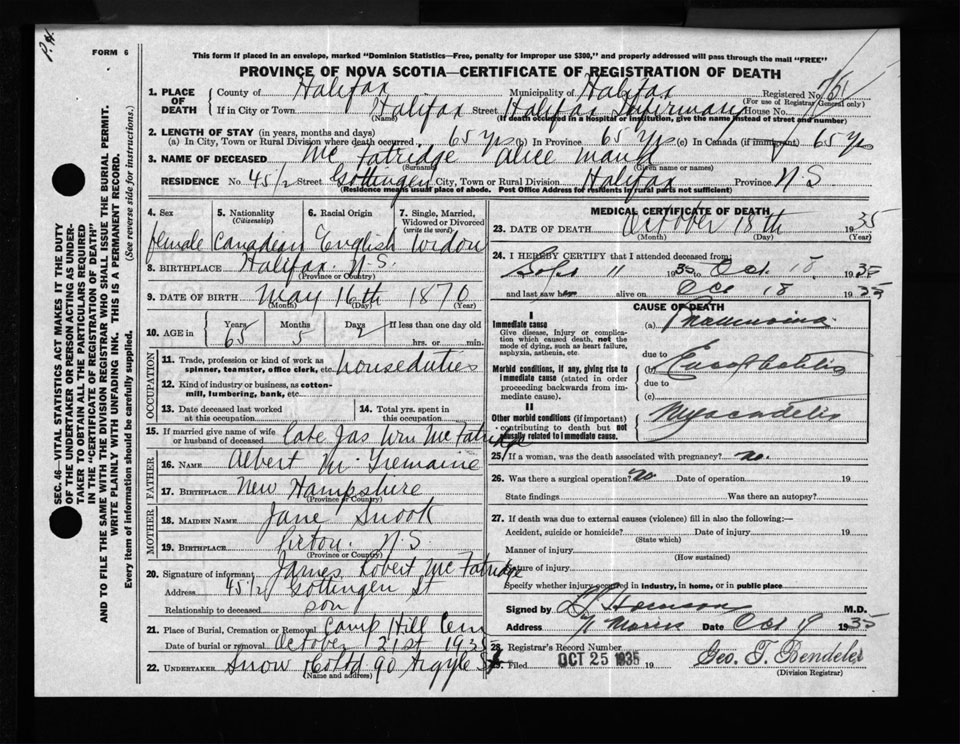 P.H.
FORM 6
This form if placed in an envelope, marked "Dominion Statistics—Free, penalty for improper use $300," and properly addressed will pass through the mail "FREE"
PROVINCE OF NOVA SCOTIA—CERTIFICATE OF REGISTRATION OF DEATH
SEC. 46—VITAL STATISTICS ACT MAKES IT THE DUTY
OF THE UNDERTAKER OR PERSON ACTING AS UNDER-
TAKER TO OBTAIN ALL THE PARTICULARS REQUIRED
IN THE "CERTIFICATE OF REGISTRATION OF DEATH"
AND TO FILE THE SAME WITH THE DIVISION REGISTRAR WHO SHALL ISSUE THE BURIAL PERMIT.
WRITE PLAINLY WITH UNFADING INK. THIS IS A PERMANENT RECORD.
Every item of information should be carefully supplied. (See reverse side for instructions.)
1. PLACE OF DEATH County of Halifax Municipality of Halifax Registered No.
(For use of Registrar General only)
If in City or Town Halifax Street Halifax Infirmary House No.
(Name) (If death occurred in a hospital or institution, give the name instead of street and number)
2. LENGTH OF STAY (in years, months and days)
(a) In City, Town or Rural Division where death occurred 65 yrs (b) In Province 65 yrs (c) In Canada (if immigrant) 65 yrs
3. NAME OF DECEASED Mc Fatridge Alice Maud
(Surname) (Given name or names)
RESIDENCE No. 45 1/2 Street Gottingen City, Town or Rural Division Halifax Province N S
(Residence means usual place of abode. Post Office Address for residents in rural parts not sufficient)
4. Sex 5. Nationality (Citizenship) 6. Racial Origin 7. Single, Married, Widowed or Divorced (write the word)
female Canadian English Widow
8. BIRTHPLACE Halifax N.S.
(Province or Country)
9. DATE OF BIRTH May 16th 1870
(Month) (Day) (Year)
10. AGE in Years Months Days If less than one day old
65 5 2 hrs. or min.
OCCUPATION
11. Trade, profession or kind of work as spinner, teamster, office clerk, etc. houseduties
12. Kind of industry or business, as cotton-mill, lumbering, bank, etc.
13. Date deceased last worked at this occupation 14. Total yrs. spent in this occupation
15. If married give name of wife or husband of deceased Late Jas Wm McFatridge
FATHER
16. NAME Albert M. Tremaine
17. BIRTHPLACE New Hampshire
(Province or Country)
MOTHER
18. MAIDEN NAME Jane Snook
19. BIRTHPLACE N.S.
(Province or Country)
20. Signature of informant James Robert McFatridge
Address 45 1/2 Gottingen St
Relationship to deceased son
21. Place of Burial, Cremation or Removal Camp Hill Cem
Date of burial or removal October 21st 1935
22. UNDERTAKER Snow & Co Ltd 90 Argyle St
(Name and address)
MEDICAL CERTIFICATE OF DEATH
23. DATE OF DEATH October 18th 1935
(Month) (Day) (Year)
24. I HEREBY CERTIFY that I attended deceased from:
Sept 11 1935 to Oct. 18 1935
and last saw alive on Oct 18 1935
CAUSE OF DEATH
I
Immediate cause
Give disease, injury or complication which caused death, not the mode of dying, such as heart failure, asphyxia, asthenia, etc.
(a) Pneumonia
due to
Morbid conditions, if any, giving rise to immediate cause (stated in order proceeding backwards from immediate cause).
(b)
due to
(c)
II
Other morbid conditions (if important) contributing to death but not causally related to immediate cause.
25. If a woman, was the death associated with pregnancy? no.
26. Was there a surgical operation? No Date of operation 19
State findings Was there an autopsy?
27. If death was due to external causes (violence) fill in also the following:—
Accident, suicide or homicide? Date of injury 19
(State which)
Manner of injury
(How sustained)
Nature of injury
Specify whether injury occurred in industry, in home, or in public place
Signed by M.D.
Address Morris Date Oct 19 1935
28. Registrar's Record Number
29. Filed OCT 25 1935 19 Geo. T. Bendeler
(Division Registrar)